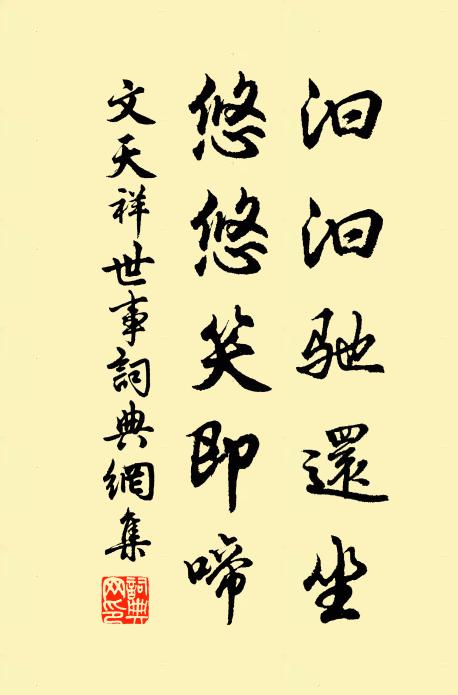 汩汩馳還坐
悠悠笑即啼
文天祥世事詞典網集